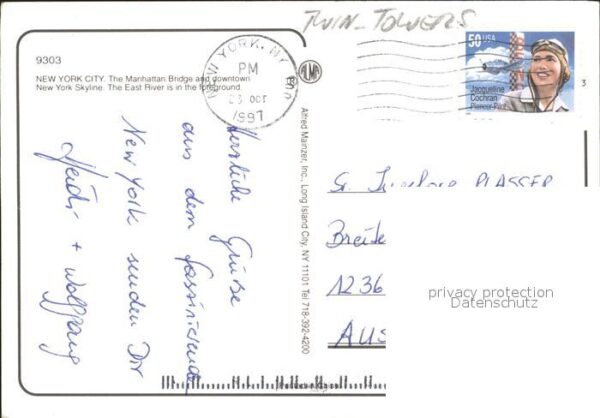 TWIN-TOWERS
9303
NEW YORK CITY. The Manhattan Bridge and downtown
New York Skyline. The East River is in the foreground.
NEW YORK, NY
PM
23 OCT
1997
50 USA
Jacqueline
Cochran
Pioneer Pilot
3
Alfred Mainzer, Inc., Long Island City, NY 11101 Tel 718-392-4200
Herzliche Grüße
aus dem faszinierenden
New York senden Dir
Heidi + Wolfgang
PLASSER
Breite
1236
AUS
privacy protection
Datenschutz